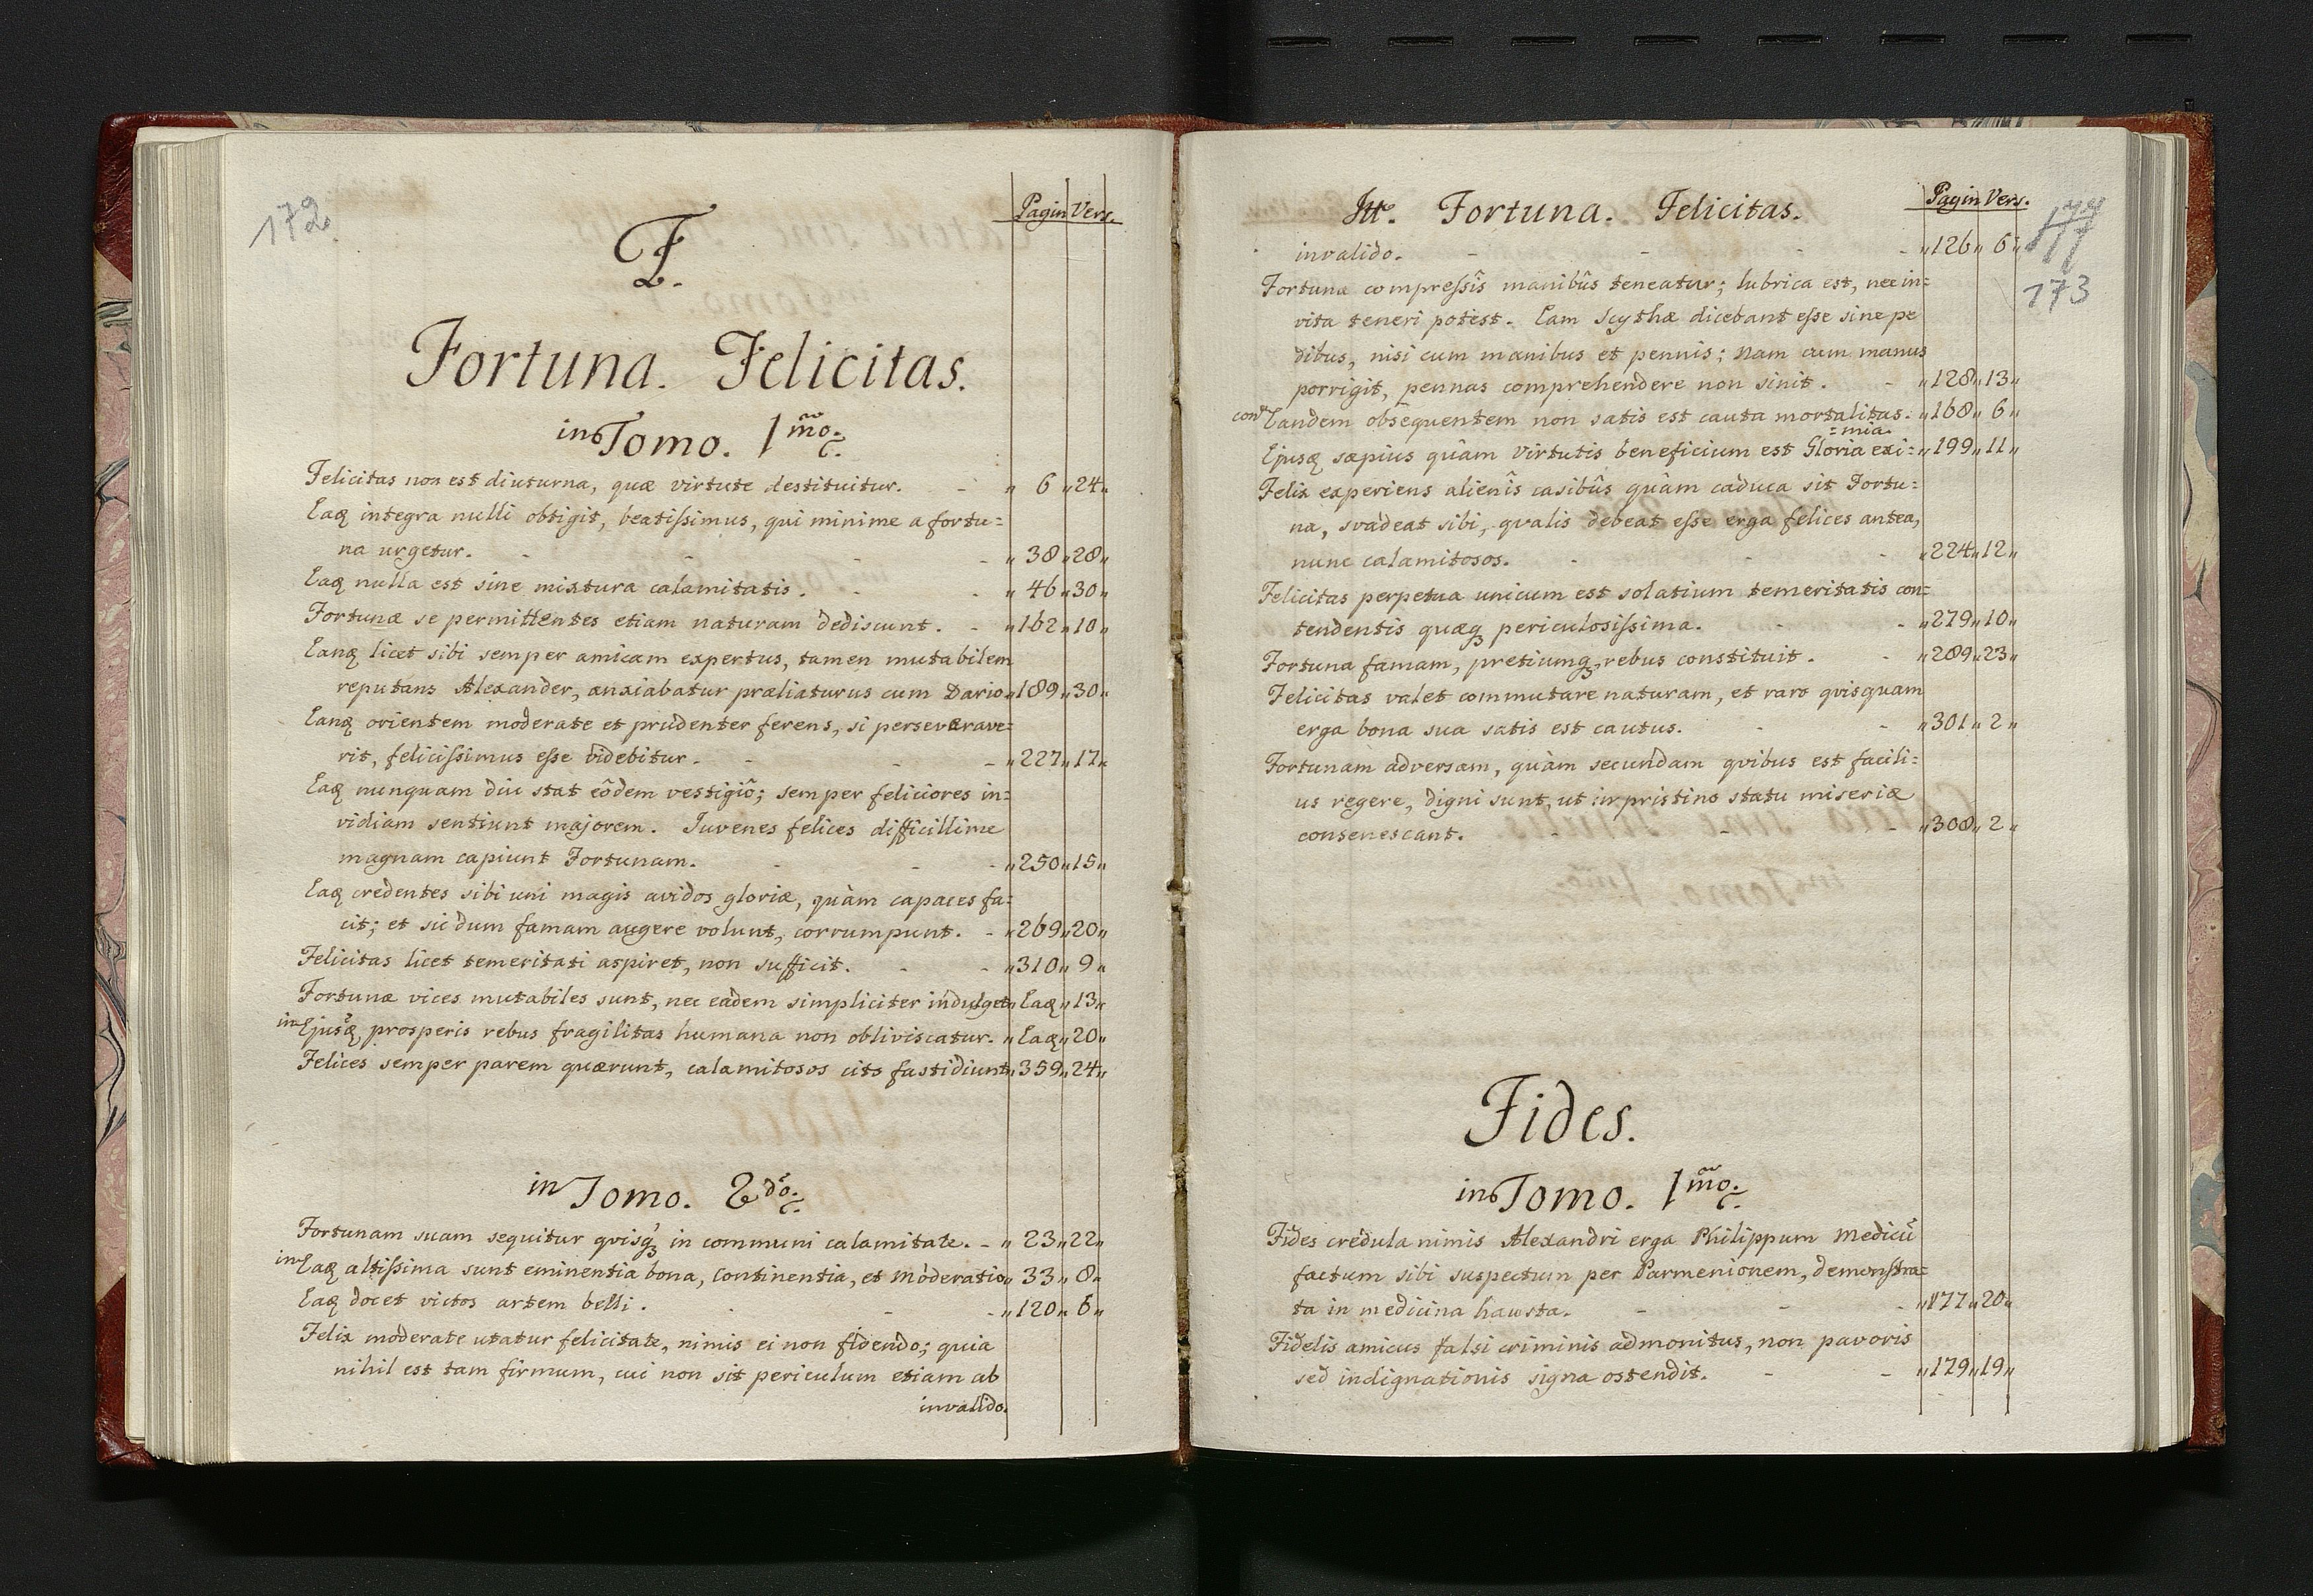 172
Pagin Vers.
F.
Fortuna. Felicitas.
in Tomo. 1mo.
Felicitas non est diuturna, quæ virtute destituitur. - „ 6 „ 24 „
Eaq integra nulli obtigit, beatissimus, qui minime a fortu=
na urgetur. - - - „ 38 „ 28 „
Eaq nulla est sine mixtura calamitatis. - - „ 46 „ 30 „
Fortunæ se permittentes etiam naturam dediscunt. - „ 162 „ 10 „
Eanq licet sibi semper amicam expertus, tamen mutabilem
reputans Alexander, anxiabatur præliaturus cum Dario „ 189 „ 30 „
Eanq orientem moderate et prudenter ferens, si perseverave=
rit, felicissimus esse videbitur. - - - „ 227 „ 17 „
Eaq nunquam diu stat eôdem vestigiô; semper feliciores in=
vidiam sentiunt majorem. Juvenes felices difficillime
magnam capiunt Fortunam. - - - „ 250 „ 15 „
Eaq credentes sibi uni magis avidos gloriæ, quàm capaces fa=
cit; et sic dum famam augere volunt, corrumpunt. - „ 269 „ 20 „
Felicitas licet temeritati aspiret, non sufficit. - - „ 310 „ 9 „
Fortunæ vices mutabiles sunt, nec eadem simpliciter indulget „ Eaq „ 13 „
in Ejusq prosperis rebus fragilitas humana non obliviscatur. „ Eaq „ 20 „
Felices semper parem quærunt, calamitosos cito fastidiunt „ 359 „ 24 „
in Tomo. 2do.
Fortunam suam sequitur qvisq in communi calamitate. - „ 23 „ 22 „
in Eaq altissima sunt eminentia bona, Continentia, et Moderatio „ 33 „ 8 „
Eaq docet victos artem belli. - - - „ 120 „ 6 „
Felix moderate utatur felicitate, nimis ei non fidendo; quia
nihil est tam firmum, cui non sit periculum etiam ab
invalido.
Itt. Fortuna. Felicitas.
Pagin Vers.
177
173
invalido. - - - - „ 126 „ 6 „
Fortuna compressîs manibûs teneatur; lubrica est, nec in=
vita teneri potest. Eam Scythæ dicebant esse sine pe
dibus, nisi cum manibus et pennis; Nam cum manus
porrigit, pennas comprehendere non sinit. - „ 128 „ 13 „
con Eandem obsequentem non satis est cauta mortalitas. „ 168 „ 6 „
=mia.
Ejusq sæpius quàm Virtutis beneficium est Gloria exi= „ 199 „ 11 „
Felix experiens alienîs casibûs quàm caduca sit Fortu=
na, svadeat sibi, qvalis debeat esse erga felices antea,
nunc calamitosos. - - - „ 224 „ 12 „
Felicitas perpetua unicum est solatium temeritatis con=
tendentis quæq periculosissima. - - „ 279 „ 10 „
Fortuna famam, pretiumq rebus constituit. - „ 289 „ 23 „
Felicitas valet commutare naturam, et raro qvisquam
erga bona sua satis est cautus. - - „ 301 „ 2 „
Fortunam adversam, quàm secundam qvibus est facili=
us regere, digni sunt, ut in pristino statu miseriæ
consenescant. - - - „ 308 „ 2 „
Fides.
in Tomo. 1mo.
Fides credula nimis Alexandri erga Philippum Medicũ
factum sibi suspectum per Parmenionem, demonstra=
ta in medicina hausta. - - - „ 177 „ 20 „
Fidelis amicus falsi criminis admonitus, non pavoris
sed indignationis signa ostendit. - - „ 179 „ 19 „